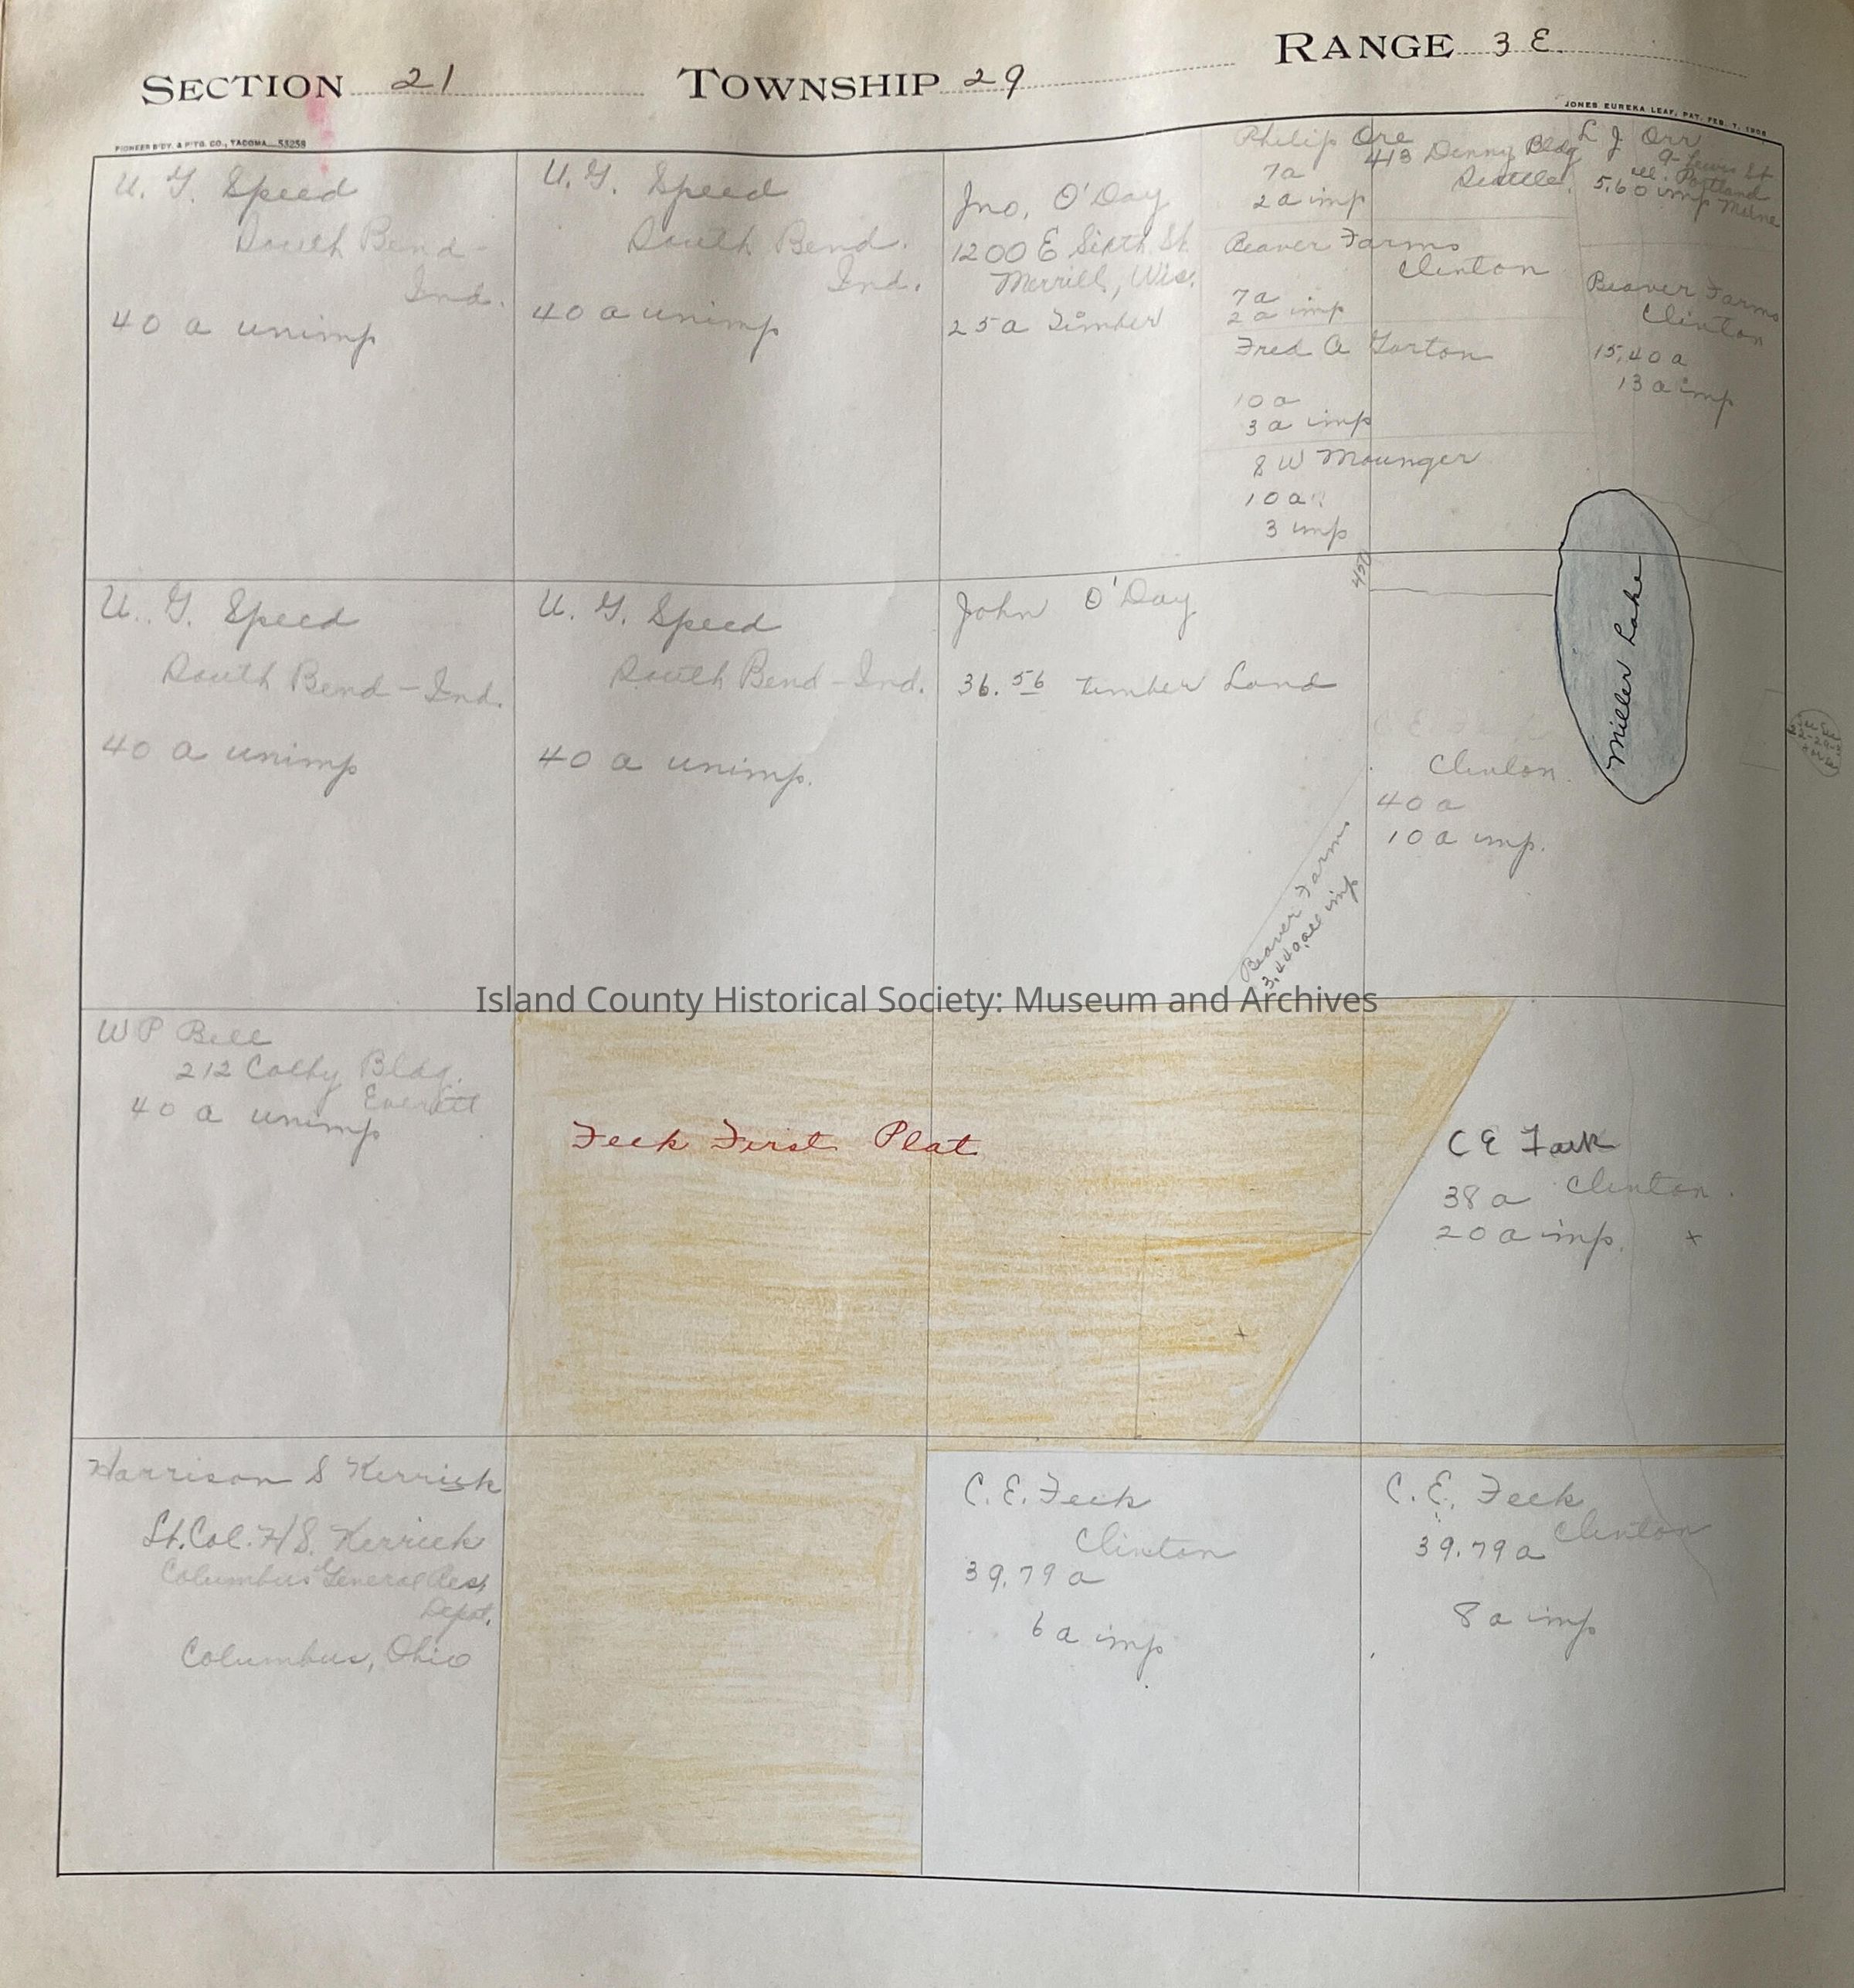 SECTION 21 TOWNSHIP 29 RANGE 3 E.
PIONEER B'DY. & P'TG. CO., TACOMA 53258
JONES EUREKA LEAF, PAT. FEB. 7, 1905
U. G. Speed
South Bend-
Ind.
40 a unimp
U. G. Speed
South Bend.
Ind.
40 a unimp
Jno. O'Day
1200 E Sixth St
Merrill, Wis.
25 a Timber
Philip Ore
413 Denny Bldg
Seattle.
7 a
2 a imp
L J Orr
9- Lewis St
Portland
Maine
5.60 imp
Beaver Farms
Clinton
7 a
2 a imp
Beaver Farms
Clinton
15.40 a
13 a imp
Fred A Gorton
10 a
3 a imp
8 W Mounger
10 a
3 imp
U. G. Speed
South Bend-Ind.
40 a unimp
U. G. Speed
South Bend-Ind.
40 a unimp.
John O'Day
36.56 timber Land
Beaver Farms
3.44 a, all imp
450
Clinton.
40 a
10 a imp.
Miller Lake
Island County Historical Society: Museum and Archives
W P Bell
212 Colby Bldg.
Everett
40 a unimp
Feek First Plat
C E Feek
38 a Clinton.
20 a imp. x
x
Harrison S Kerrick
Lt. Col. H S. Kerrick
Columbus General Res,
Depot.
Columbus, Ohio
C. E. Feek
Clinton
39.79 a
6 a imp
C. E. Feek
Clinton
39.79 a
8 a imp